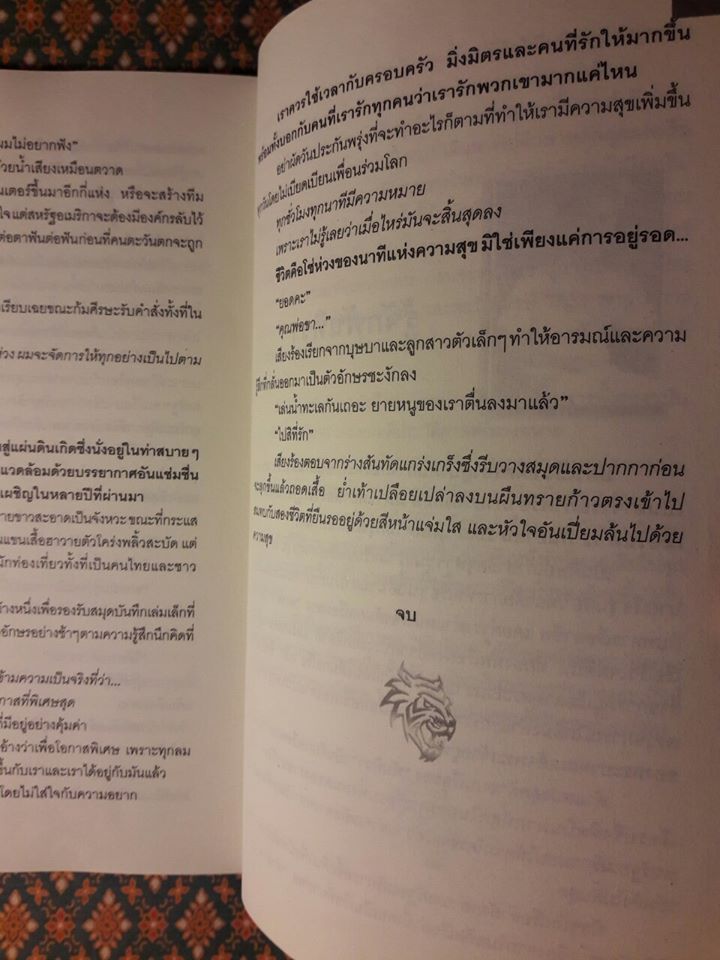 ผมไม่อยากฟัง”
ด้วยน้ำเสียงเหมือนตวาด
นเตอร์ขึ้นมาอีกกี่แห่ง หรือจะสร้างทีม
ใจ แต่สหรัฐอเมริกาจะต้องมีองค์กรลับไว้
ต่อตาฟันต่อฟันก่อนที่คนตะวันตกจะถูก
เรียบเฉยขณะก้มศีรษะรับคำสั่งทั้งที่ใน
ห่วง ผมจะจัดการให้ทุกอย่างเป็นไปตาม
สู่แผ่นดินเกิดซึ่งนั่งอยู่ในท่าสบายๆ
แวดล้อมด้วยบรรยากาศอันแช่มชื่น
เผชิญในหลายปีที่ผ่านมา
ายขาวสะอาดเป็นจังหวะ ขณะที่กระแส
นแขนเสื้อฮาวายตัวโคร่งพลิ้วสะบัด แต่
นักท่องเที่ยวทั้งที่เป็นคนไทยและชาว
้างหนึ่งเพื่อรองรับสมุดบันทึกเล่มเล็กที่
อักษรอย่างช้าๆตามความรู้สึกนึกคิดที่
ข้ามความเป็นจริงที่ว่า...
กาสที่พิเศษสุด
ที่มีอยู่อย่างคุ้มค่า
อ้างว่าเพื่อโอกาสพิเศษ เพราะทุกลม
ขึ้นกับเราและเราได้อยู่กับมันแล้ว
โดยไม่ใส่ใจกับความอยาก
เราควรใช้เวลากับครอบครัว มิ่งมิตรและคนที่รักให้มากขึ้น
พร้อมทั้งบอกกับคนที่เรารักทุกคนว่าเรารักพวกเขามากแค่ไหน
อย่าผัดวันประกันพรุ่งที่จะทำอะไรก็ตามที่ทำให้เรามีความสุขเพิ่มขึ้น
ทุกวันโดยไม่เบียดเบียนเพื่อนร่วมโลก
ทุกชั่วโมงทุกนาทีมีความหมาย
เพราะเราไม่รู้เลยว่าเมื่อไหร่มันจะสิ้นสุดลง
ชีวิตคือโซ่ห่วงของนาทีแห่งความสุข มิใช่เพียงแค่การอยู่รอด...
“ยอดคะ”
“คุณพ่อขา...”
เสียงร้องเรียกจากบุษบาและลูกสาวตัวเล็กๆ ทำให้อารมณ์และความ
รู้สึกที่กลั่นออกมาเป็นตัวอักษรชะงักลง
“เล่นน้ำทะเลกันเถอะ ยายหนูของเราตื่นลงมาแล้ว”
“ไปสิที่รัก”
เสียงร้องตอบจากร่างสันทัดแกร่งเกร็งซึ่งรีบวางสมุดและปากกาก่อน
จะลุกขึ้นแล้วถอดเสื้อ ย่ำเท้าเปลือยเปล่าลงบนผืนทรายก้าวตรงเข้าไป
สมทบกับสองชีวิตที่ยืนรออยู่ด้วยสีหน้าแจ่มใส และหัวใจอันเปี่ยมล้นไปด้วย
ความสุข
จบ